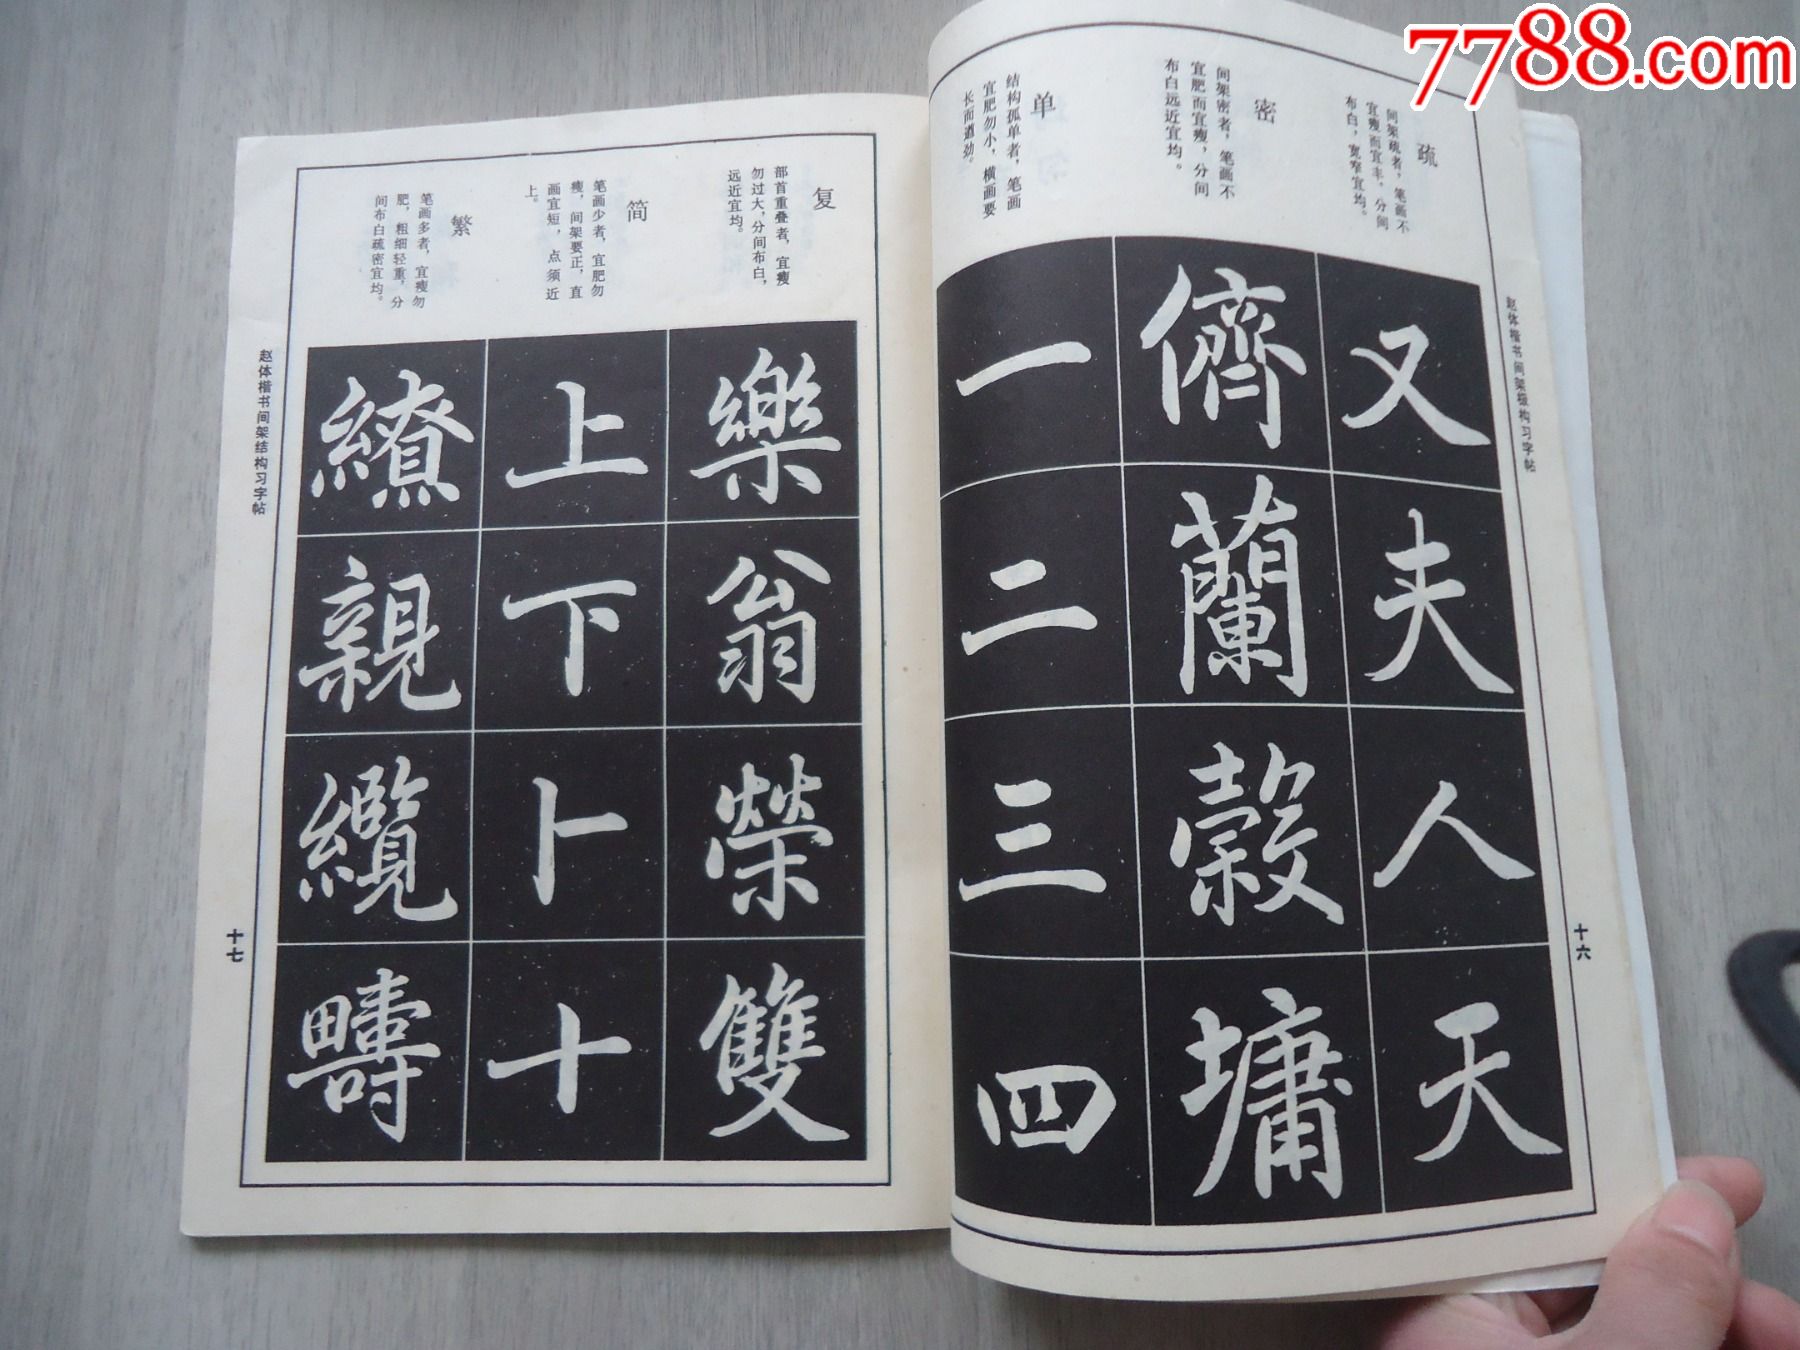 7788.com
赵体楷书间架结构习字帖
十六
疏
间架疏者，笔画不
宜瘦而宜丰，分间
布白，宽窄宜均。
又夹人天
密
间架密者，笔画不
宜肥而宜瘦，分间
布白远近宜均。
儕蘭穀墉
单
结构孤单者，笔画
宜肥勿小，横画要
长而遒劲。
一二三四
复
部首重叠者，宜瘦
勿过大，分间布白，
远近宜均。
樂翁榮雙
简
笔画少者，宜肥勿
瘦，间架要正，直
画宜短，点须近
上。
上下卜十
繁
笔画多者，宜瘦勿
肥，粗细轻重，分
间布白疏密宜均。
繚親纜疇
赵体楷书间架结构习字帖
十七